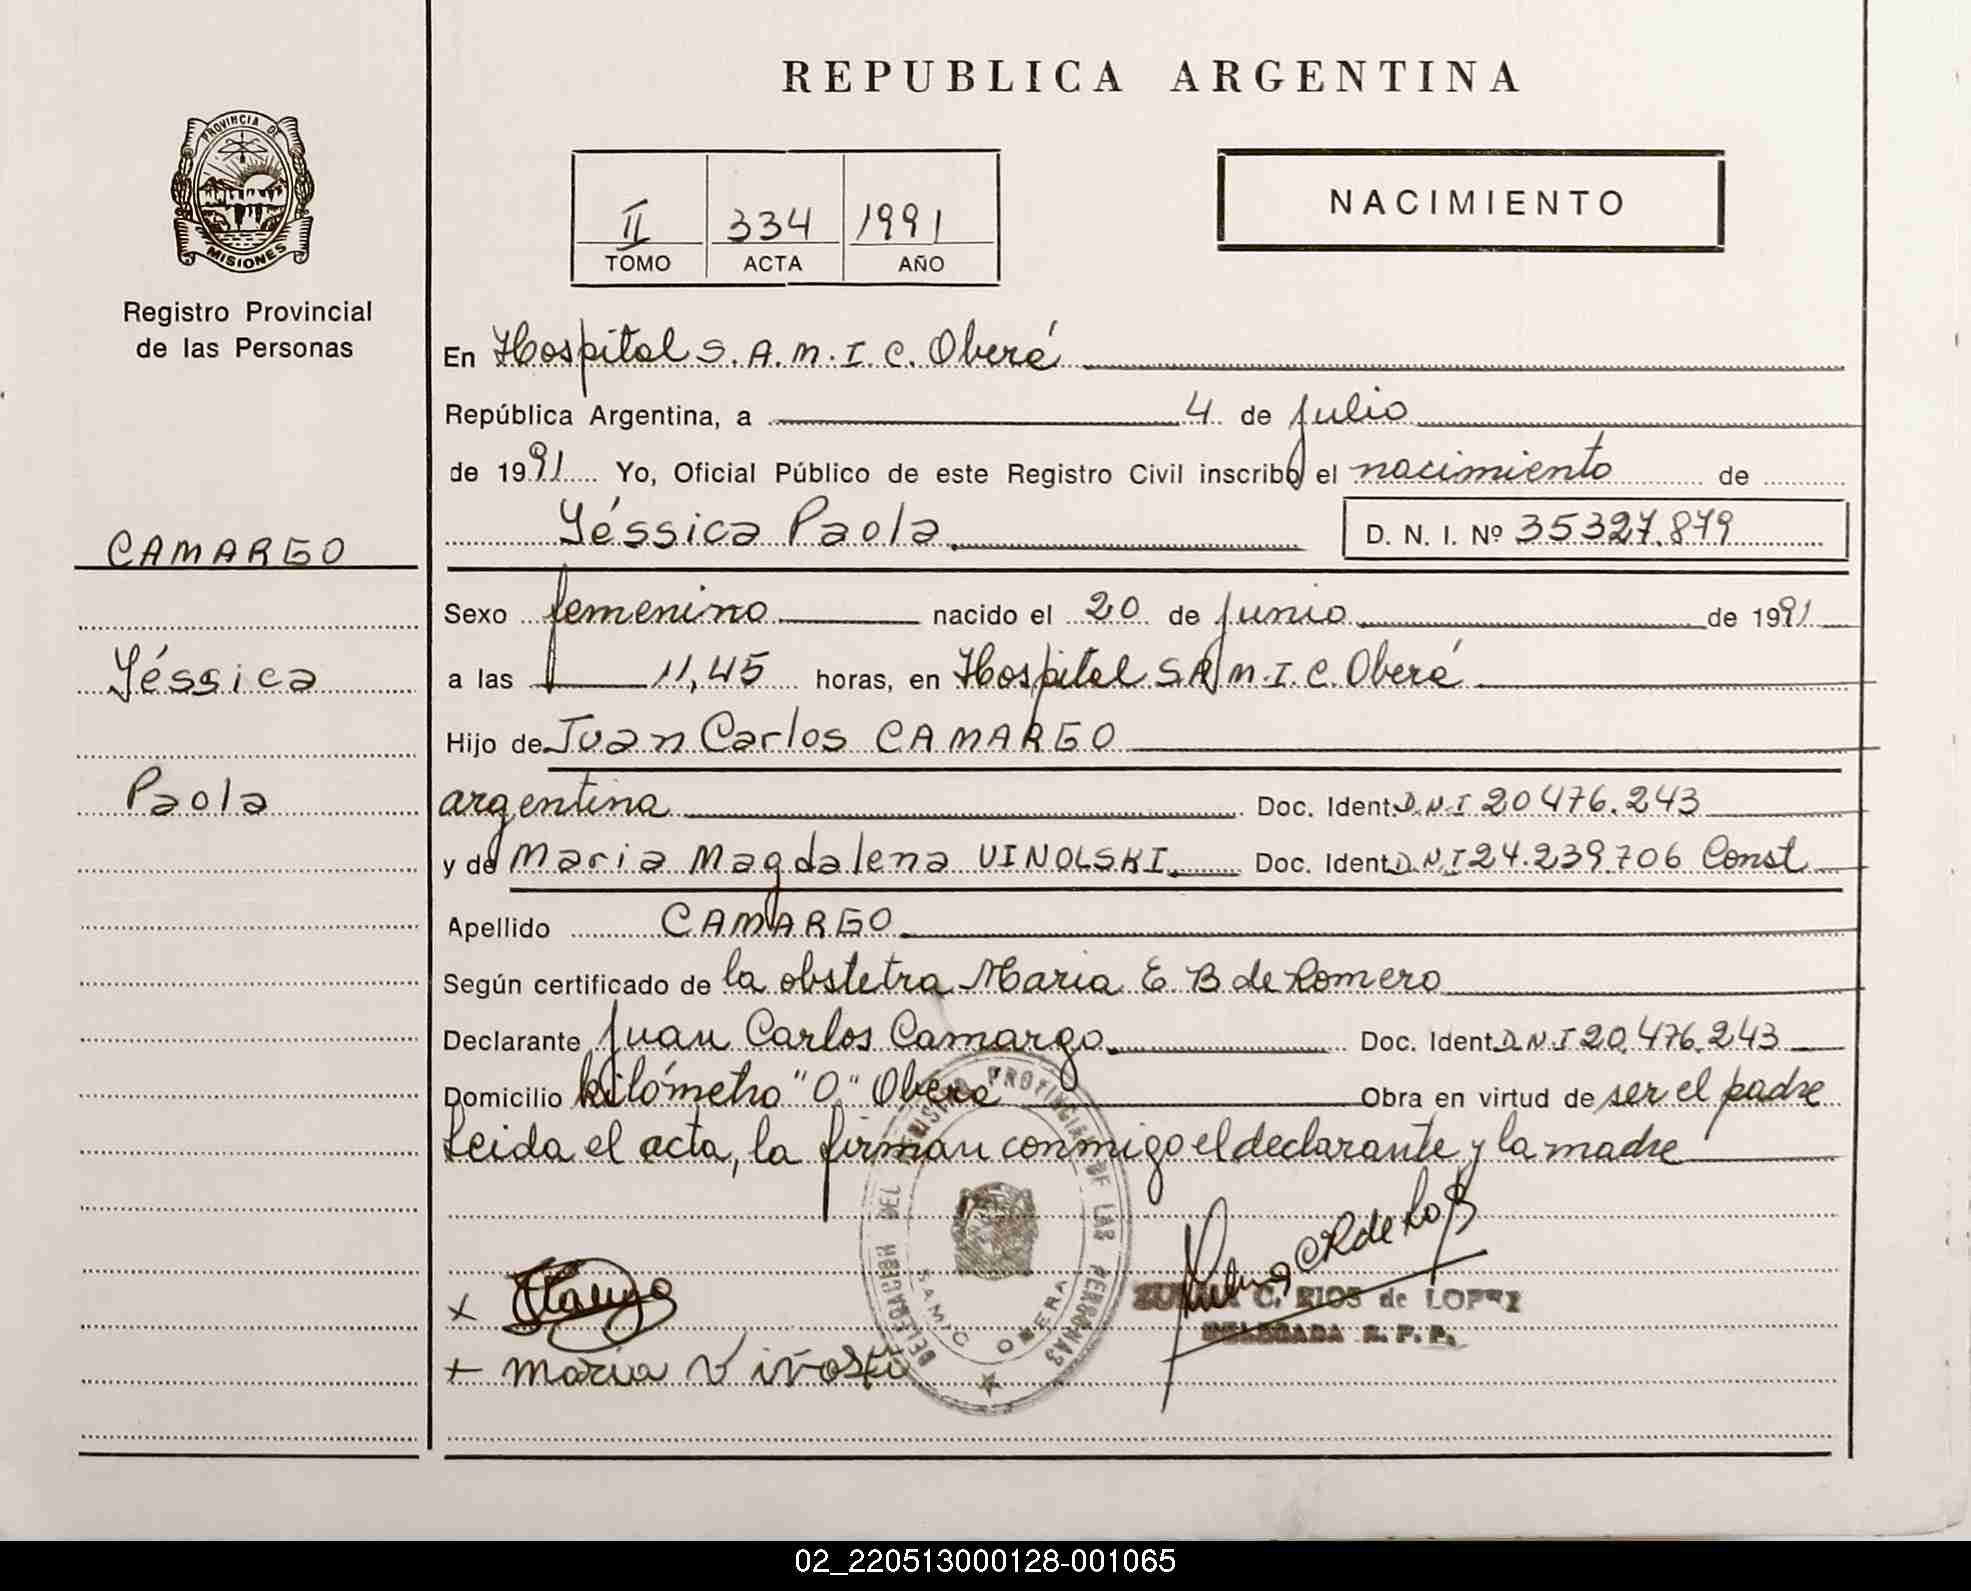 REPUBLICA ARGENTINA
PROVINCIA DE
MISIONES
Registro Provincial
de las Personas
II 334 1991
TOMO ACTA AÑO
NACIMIENTO
En Hospital S.A.M.I.C. Oberá
República Argentina, a 4 de julio
de 1991 Yo, Oficial Público de este Registro Civil inscribo el nacimiento de
Yéssica Paola. D. N. I. Nº 35327.879
CAMARGO
Yéssica
Paola
Sexo femenino nacido el 20 de junio de 1991
a las 11,45 horas, en Hospital S.A.M.I.C. Oberá
Hijo de Juan Carlos CAMARGO
argentina Doc. Ident. D.N.I 20476.243
y de Maria Magdalena VINOLSKI. Doc. Ident. D.N.I 24.239.706 Const
Apellido CAMARGO.
Según certificado de la obstetra Maria E B de Romero
Declarante Juan Carlos Camargo. Doc. Ident. D.N.I 20.476.243
Domicilio kilómetro "0" Oberá Obra en virtud de ser el padre
Leida el acta, la firman conmigo el declarante y la madre
DELEGACION DEL REGISTRO PROVINCIAL DE LAS PERSONAS
SAMIC OBERA
x
C. RIOS de LOPEZ
DELEGADA R. P. P.
+ Maria
02_220513000128-001065